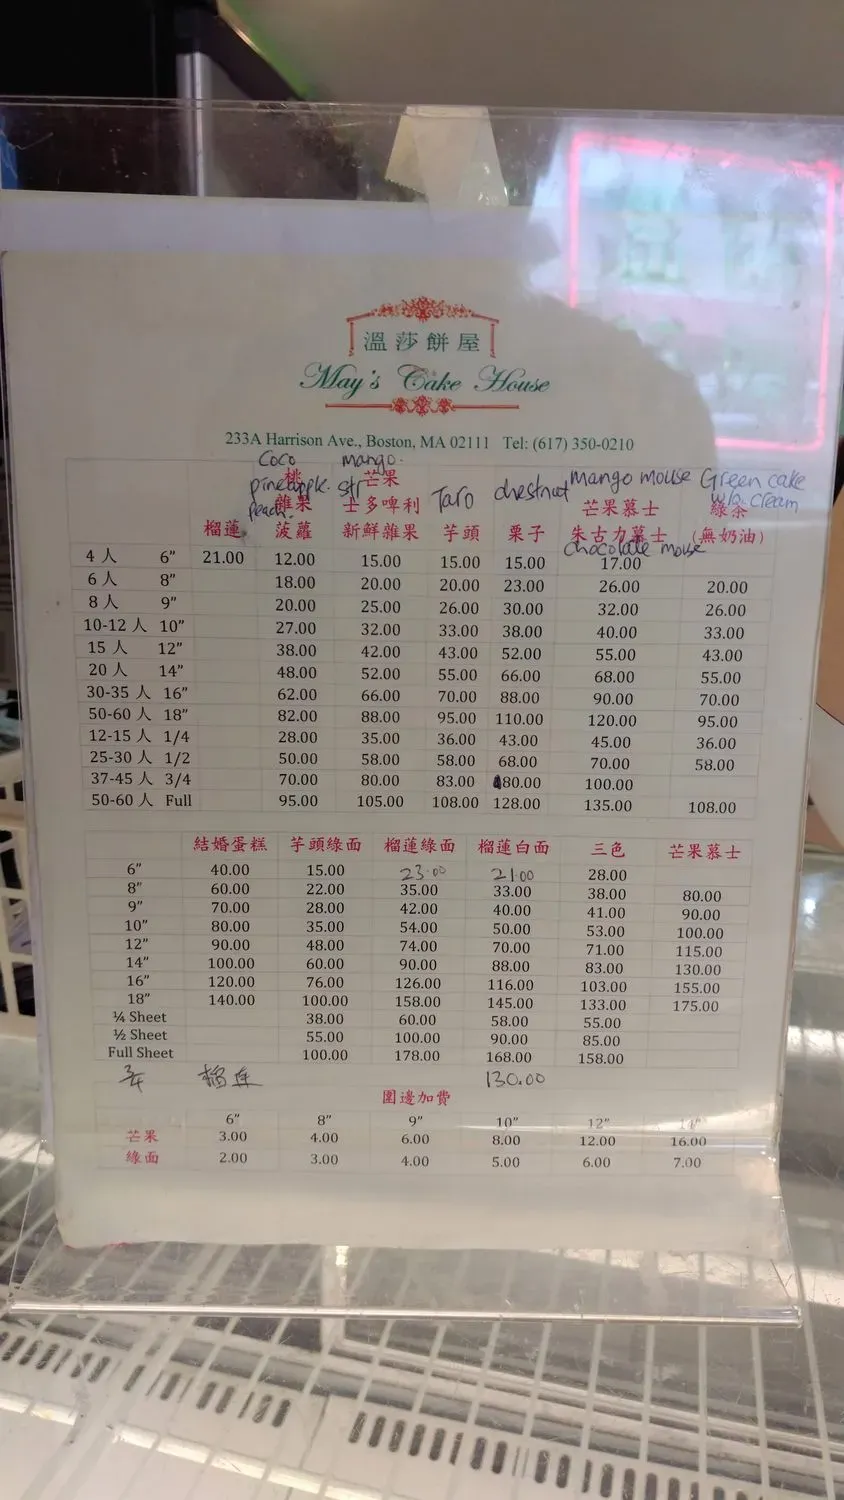 溫莎餅屋
May's Cake House
233A Harrison Ave., Boston, MA 02111 Tel: (617) 350-0210
Coco mango.
桃 芒果 mango mouse Green cake
pineapple. str Taro chestnut w/o cream
雜果 士多啤梨 芒果慕士 綠茶
peach.
榴蓮 菠蘿 新鮮雜果 芋頭 栗子 朱古力慕士 (無奶油)
chocolate mouse
4 人 6" 21.00 12.00 15.00 15.00 15.00 17.00
6 人 8" 18.00 20.00 20.00 23.00 26.00 20.00
8 人 9" 20.00 25.00 26.00 30.00 32.00 26.00
10-12 人 10" 27.00 32.00 33.00 38.00 40.00 33.00
15 人 12" 38.00 42.00 43.00 52.00 55.00 43.00
20 人 14" 48.00 52.00 55.00 66.00 68.00 55.00
30-35 人 16" 62.00 66.00 70.00 88.00 90.00 70.00
50-60 人 18" 82.00 88.00 95.00 110.00 120.00 95.00
12-15 人 1/4 28.00 35.00 36.00 43.00 45.00 36.00
25-30 人 1/2 50.00 58.00 58.00 68.00 70.00 58.00
37-45 人 3/4 70.00 80.00 83.00 80.00 100.00
50-60 人 Full 95.00 105.00 108.00 128.00 135.00 108.00
結婚蛋糕 芋頭綠面 榴蓮綠面 榴蓮白面 三色 芒果慕士
6" 40.00 15.00 23.00 21.00 28.00
8" 60.00 22.00 35.00 33.00 38.00 80.00
9" 70.00 28.00 42.00 40.00 41.00 90.00
10" 80.00 35.00 54.00 50.00 53.00 100.00
12" 90.00 48.00 74.00 70.00 71.00 115.00
14" 100.00 60.00 90.00 88.00 83.00 130.00
16" 120.00 76.00 126.00 116.00 103.00 155.00
18" 140.00 100.00 158.00 145.00 133.00 175.00
¼ Sheet 38.00 60.00 58.00 55.00
½ Sheet 55.00 100.00 90.00 85.00
Full Sheet 100.00 178.00 168.00 158.00
3/4 榴连 130.00
圍邊加費
6" 8" 9" 10" 12" 14"
芒果 3.00 4.00 6.00 8.00 12.00 16.00
綠面 2.00 3.00 4.00 5.00 6.00 7.00